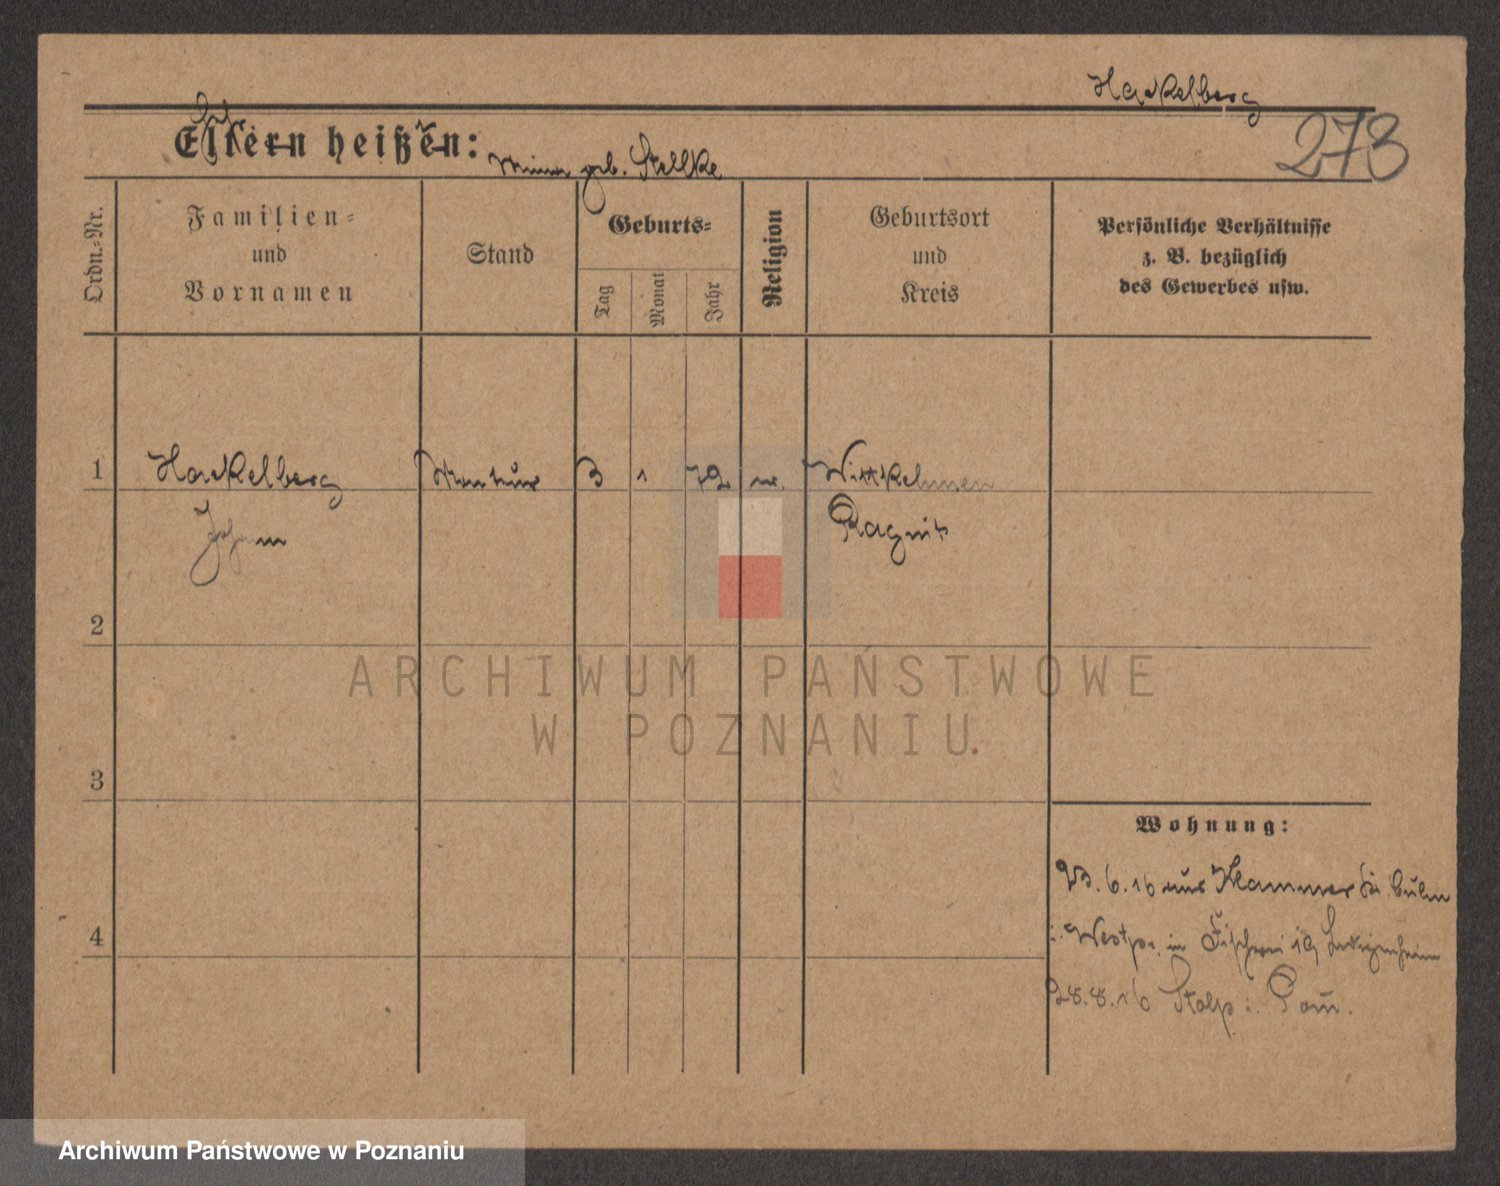 Hackelberg
273
Eltern heißen:
Frau
Minna geb. Stellke
Ordn.=Nr.
Familien=
und
Vornamen
Stand
Geburts=
Tag
Monat
Jahr
Religion
Geburtsort
und
Kreis
Persönliche Verhältnisse
z. B. bezüglich
des Gewerbes usw.
1 Hackelberg 3 1 72 Wittkehmen
Johann Ragnit
2
3
4
Wohnung:
23.6.16 aus Klammer Kr. Culm
i. Westpr. in Fischerei 19
28.8.16 Stolp i. Pom.
ARCHIWUM PAŃSTWOWE
W POZNANIU
Archiwum Państwowe w Poznaniu